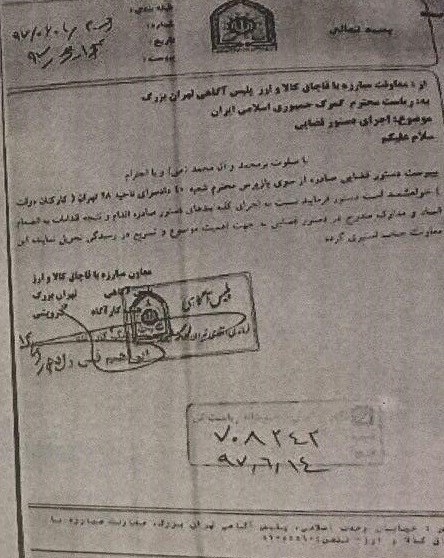 بسمه تعالی
طبقه بندی:
شماره:
تاریخ:
پیوست:
از: معاونت مبارزه با قاچاق کالا و ارز پلیس آگاهی تهران بزرگ
به: ریاست محترم گمرک جمهوری اسلامی ایران
موضوع: اجرای دستور قضایی
سلام علیکم
با صلوات بر محمد و آل محمد (ص) و با احترام
بپیوست دستور قضایی صادره از سوی بازپرس محترم شعبه دادسرای ناحیه ۲۸ تهران ( کارکنان دولت
) خواهشمند است دستور فرمایید نسبت به اجرای کلیه بندهای دستور صادره اقدام و نتیجه اقدامات به انضمام
اسناد و مدارک مندرج در دستور قضایی به جهت اهمیت موضوع و تسریع در رسیدگی تحویل نماینده این
معاونت گردد
معاون مبارزه با قاچاق کالا و ارز
پلیس آگاهی تهران بزرگ
کارآگاه
پلیس آگاهی
۷۰۸۲۴۲
۹۷,۶,۱۴
خیابان وحدت اسلامی، پلیس آگاهی تهران بزرگ، معاونت مبارزه با
کالا و ارز- تلفن: